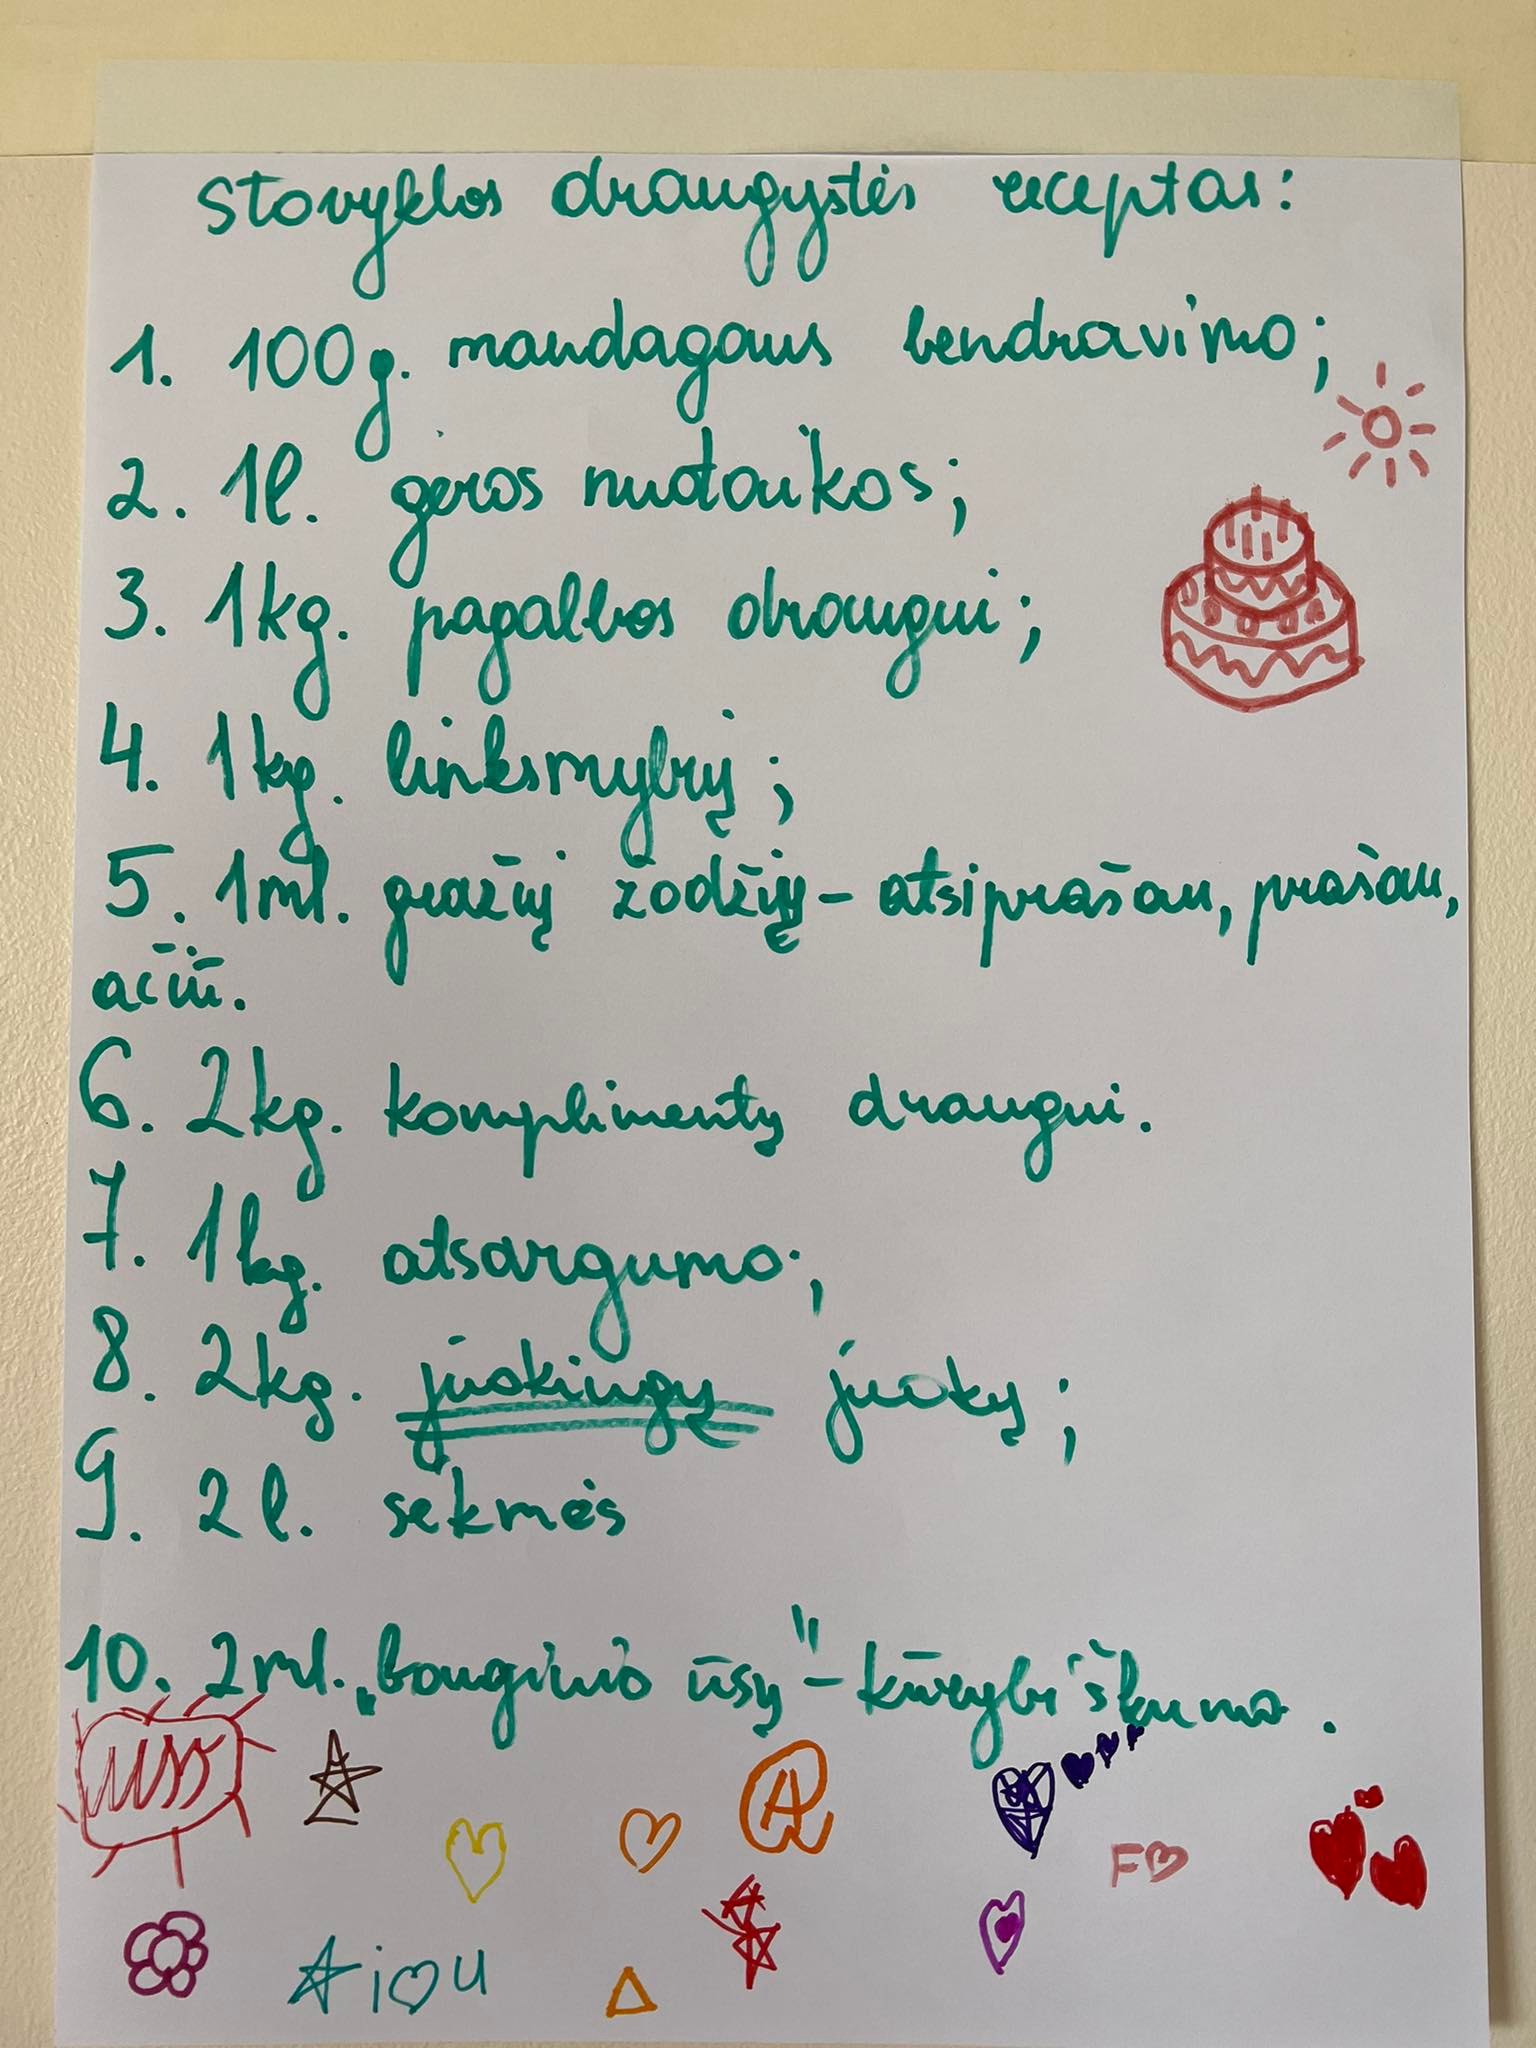 Stovyklos draugystės receptas:
1. 100g. mandagaus bendravimo;
2. 1l. geros nuotaikos;
3. 1kg. pagalbos draugui;
4. 1kg. linksmybių;
5. 1ml. gražių žodžių - atsiprašau, prašau,
ačiū.
6. 2kg. komplimentų draugui.
7. 1kg. atsargumo;
8. 2kg. juokingų juokų;
9. 2l. sekmės
10. 2ml. „bauginio ūsų" - kūrybiškumo.
A
F
i u